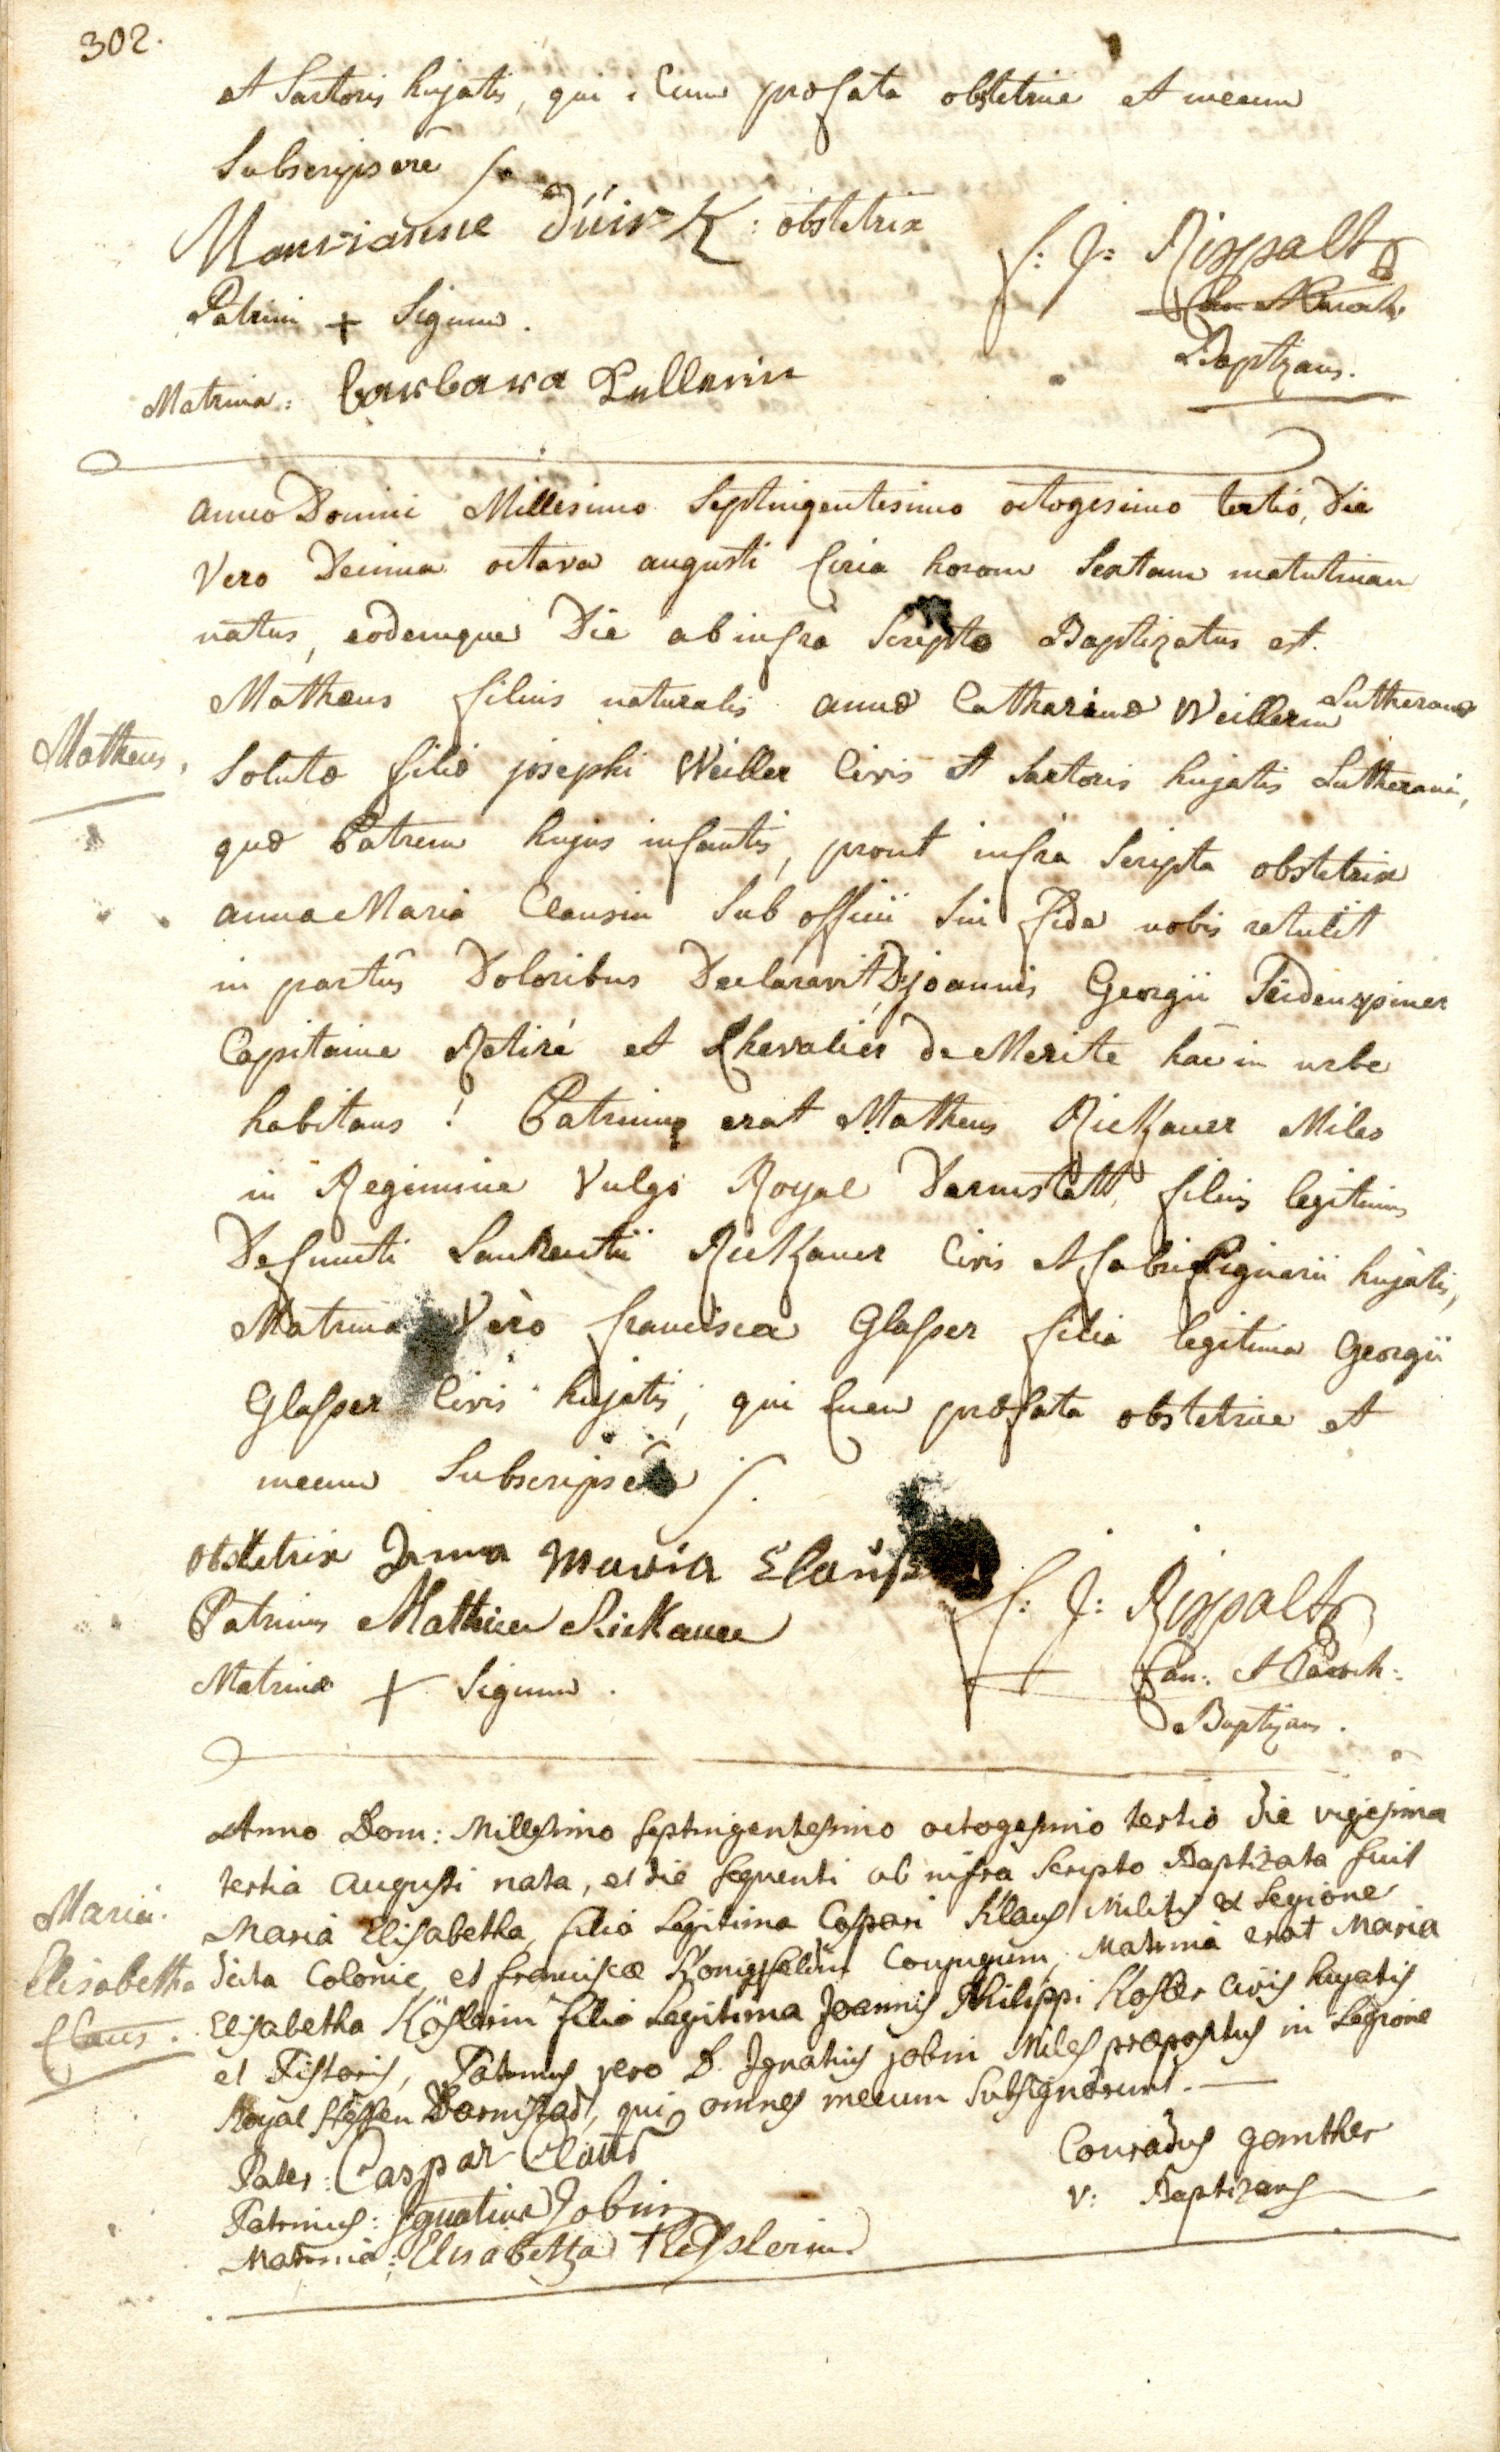 302.
et Sartoris hujatis, qui cum præfata obstetrice et mecum
Subscripsere
Marrianne Dürk : obstetrix
f: J: Rispalt
Patrini + Signum.
Baptizans.
Matrina: barbara
anno Domini Millesimo Septingentesimo octogesimo tertio, Die
Vero Decima octava augusti Circa horam Sextam matutinam
natus, eodemque Die ab infra Scripto Baptizatus est.
Matheus filius naturalis annæ Catharinæ Weillerin Lutheranæ
Matheus,
Solutæ filiæ josephi Weiller Civis et Sartoris hujatis Lutherani,
quæ Patrem hujus infantis, prout infra Scripta obstetrix
anna Maria Clausin Sub officii Sui fide nobis retulit
in partus Doloribus Declaravit D: joannis Georgii
Capitaine Retiré et Chevalier de Merite hac in urbe
habitans ! Patrinus erat Matheus Rickauer Miles
in Regimine Vulgo Royal Darmstatt, filius legitimus
Defuncti Laurentii Rickauer Civis et fabri Lignarii hujatis,
Matrina Vero francisca Glasser filia legitima Georgii
Glasser Civis hujatis, qui Cum præfata obstetrice et
mecum Subscripsere
obstetrix Anna Maria
Patrinus Mathieu Rickauer
f: J: Rispalt
Matrinæ + Signum.
Can: et Paroch:
Baptizans.
Anno Dom: Millesimo septingentesimo octogesimo tertio die vigesima
tertia Augusti nata, et die sequenti ab infra Scripto Baptizata fuit
Maria Elisabetha, filia Legitima Caspari Klaus Militis ex Legione
Maria.
Elisabetha
Claus.
dicta Colonie, et franciscæ Königsfeldin Conjugum, Matrina erat Maria
Elisabetha Köslerin filia Legitima Joannis Philippi Kösler civis hujatis
et Pistoris, Patrinus vero D. Ignatius jobin Miles præpositus in Legione
Royal Hessen Darmstad, qui omnes mecum Subsignarunt.
Pater: Caspar Claus
Conradus gemther
Patrinus: Ignatius Jobin
v: Baptizans
Matrina: Elisabetha